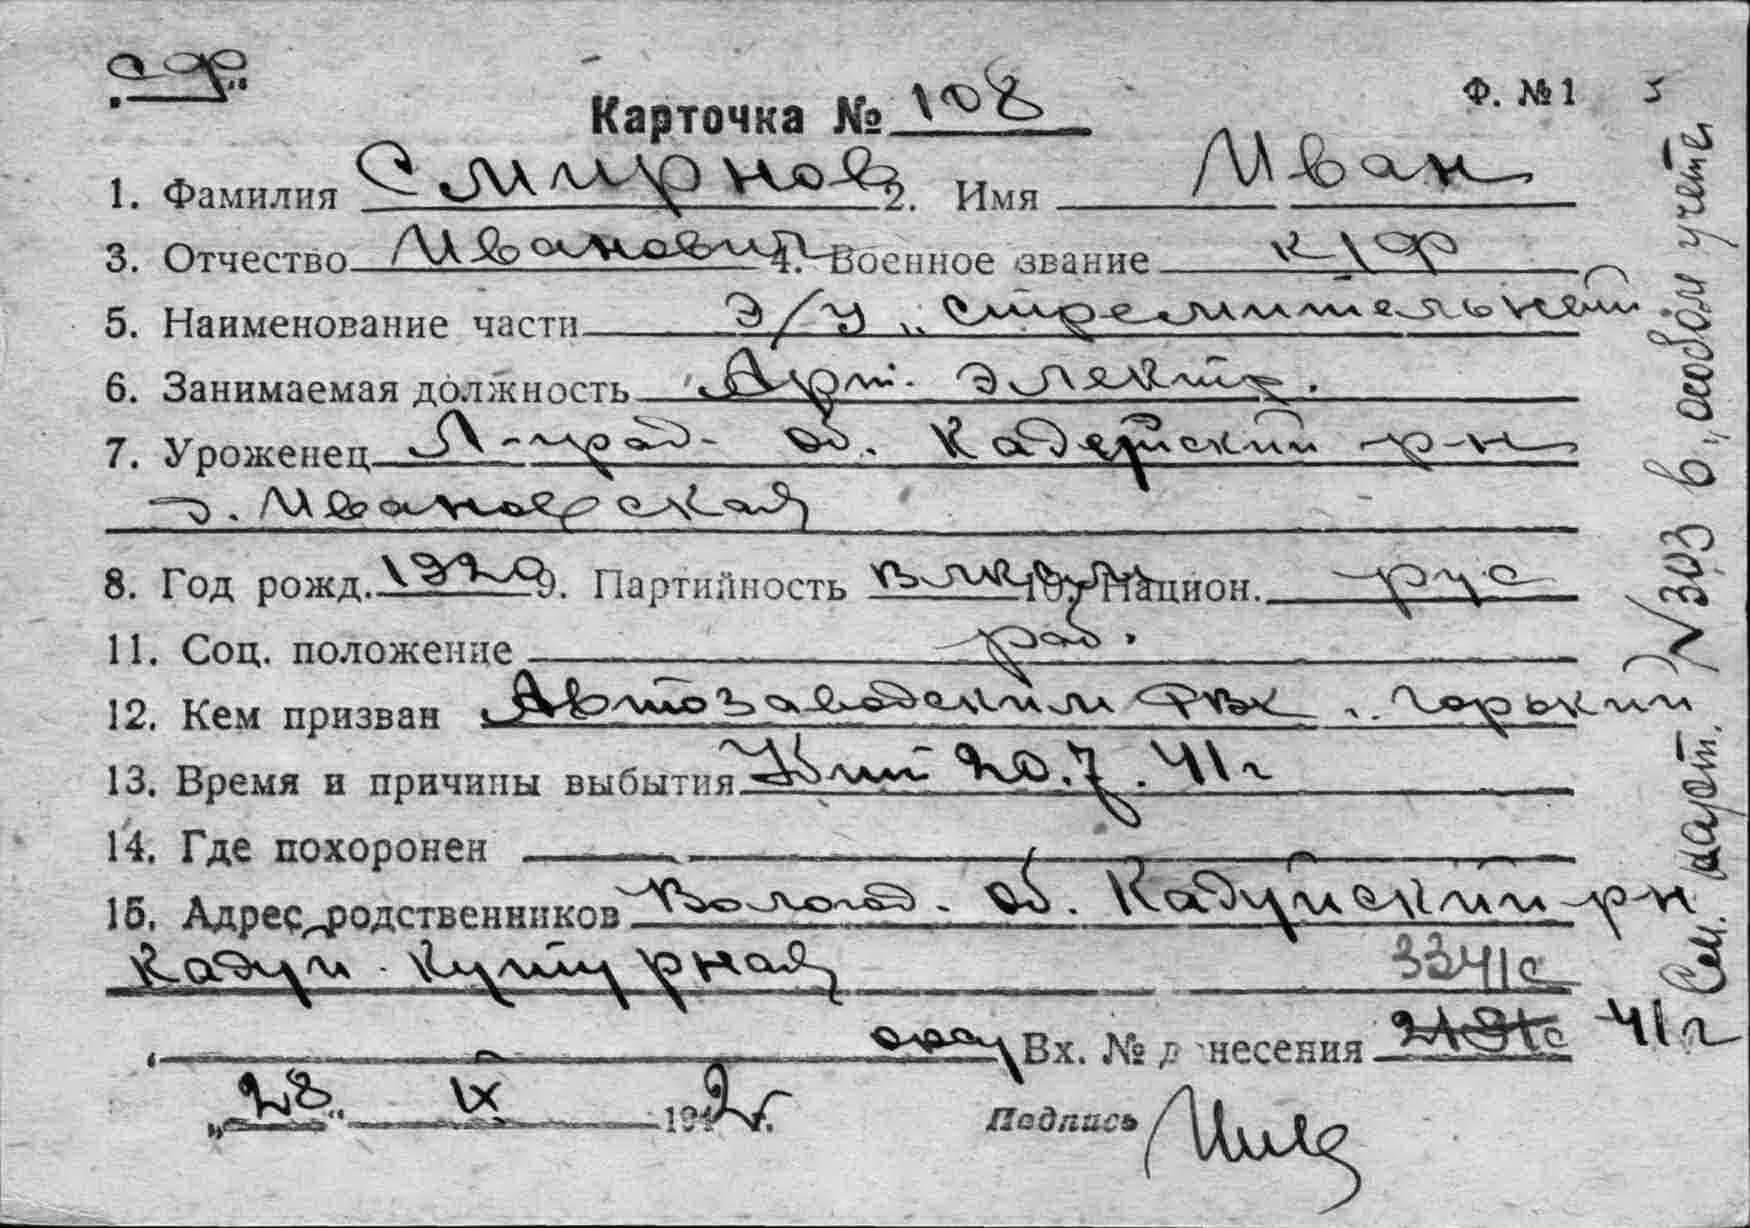 „СФ“
Ф. № 1 5
Карточка № 108
1. Фамилия Смирнов 2. Имя Иван
3. Отчество Иванович 4. Военное звание к/ф
5. Наименование части Э/у „Стремительный
6. Занимаемая должность Арт. электр.
7. Уроженец Л-град. об. Кадуйский р-н
д. Ивановская
8. Год рожд. 1920 9. Партийность влксм 10. Национ. рус
11. Соц. положение раб.
12. Кем призван Автозаводским РВК г. Горький
13. Время и причины выбытия Убит 20.7.41г
14. Где похоронен
15. Адрес родственников Вологод. об. Кадуйский р-н
Кадуй.
3341с
Вх. № донесения 2191с 41г
„28“ IX 1942г.
Подпись
N 303 в „особом учете
Сем.